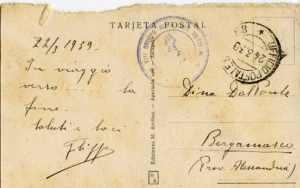 TARJETA POSTAL
22/3 1939.
In viaggio
verso ... la
fine
saluti e baci
Filippo
UFFICIO POSTALE
24.3.39
8
Dina Dal Ponte
Bergamasco
(Prov. Alessandria)
Ediciones M. Arribas.